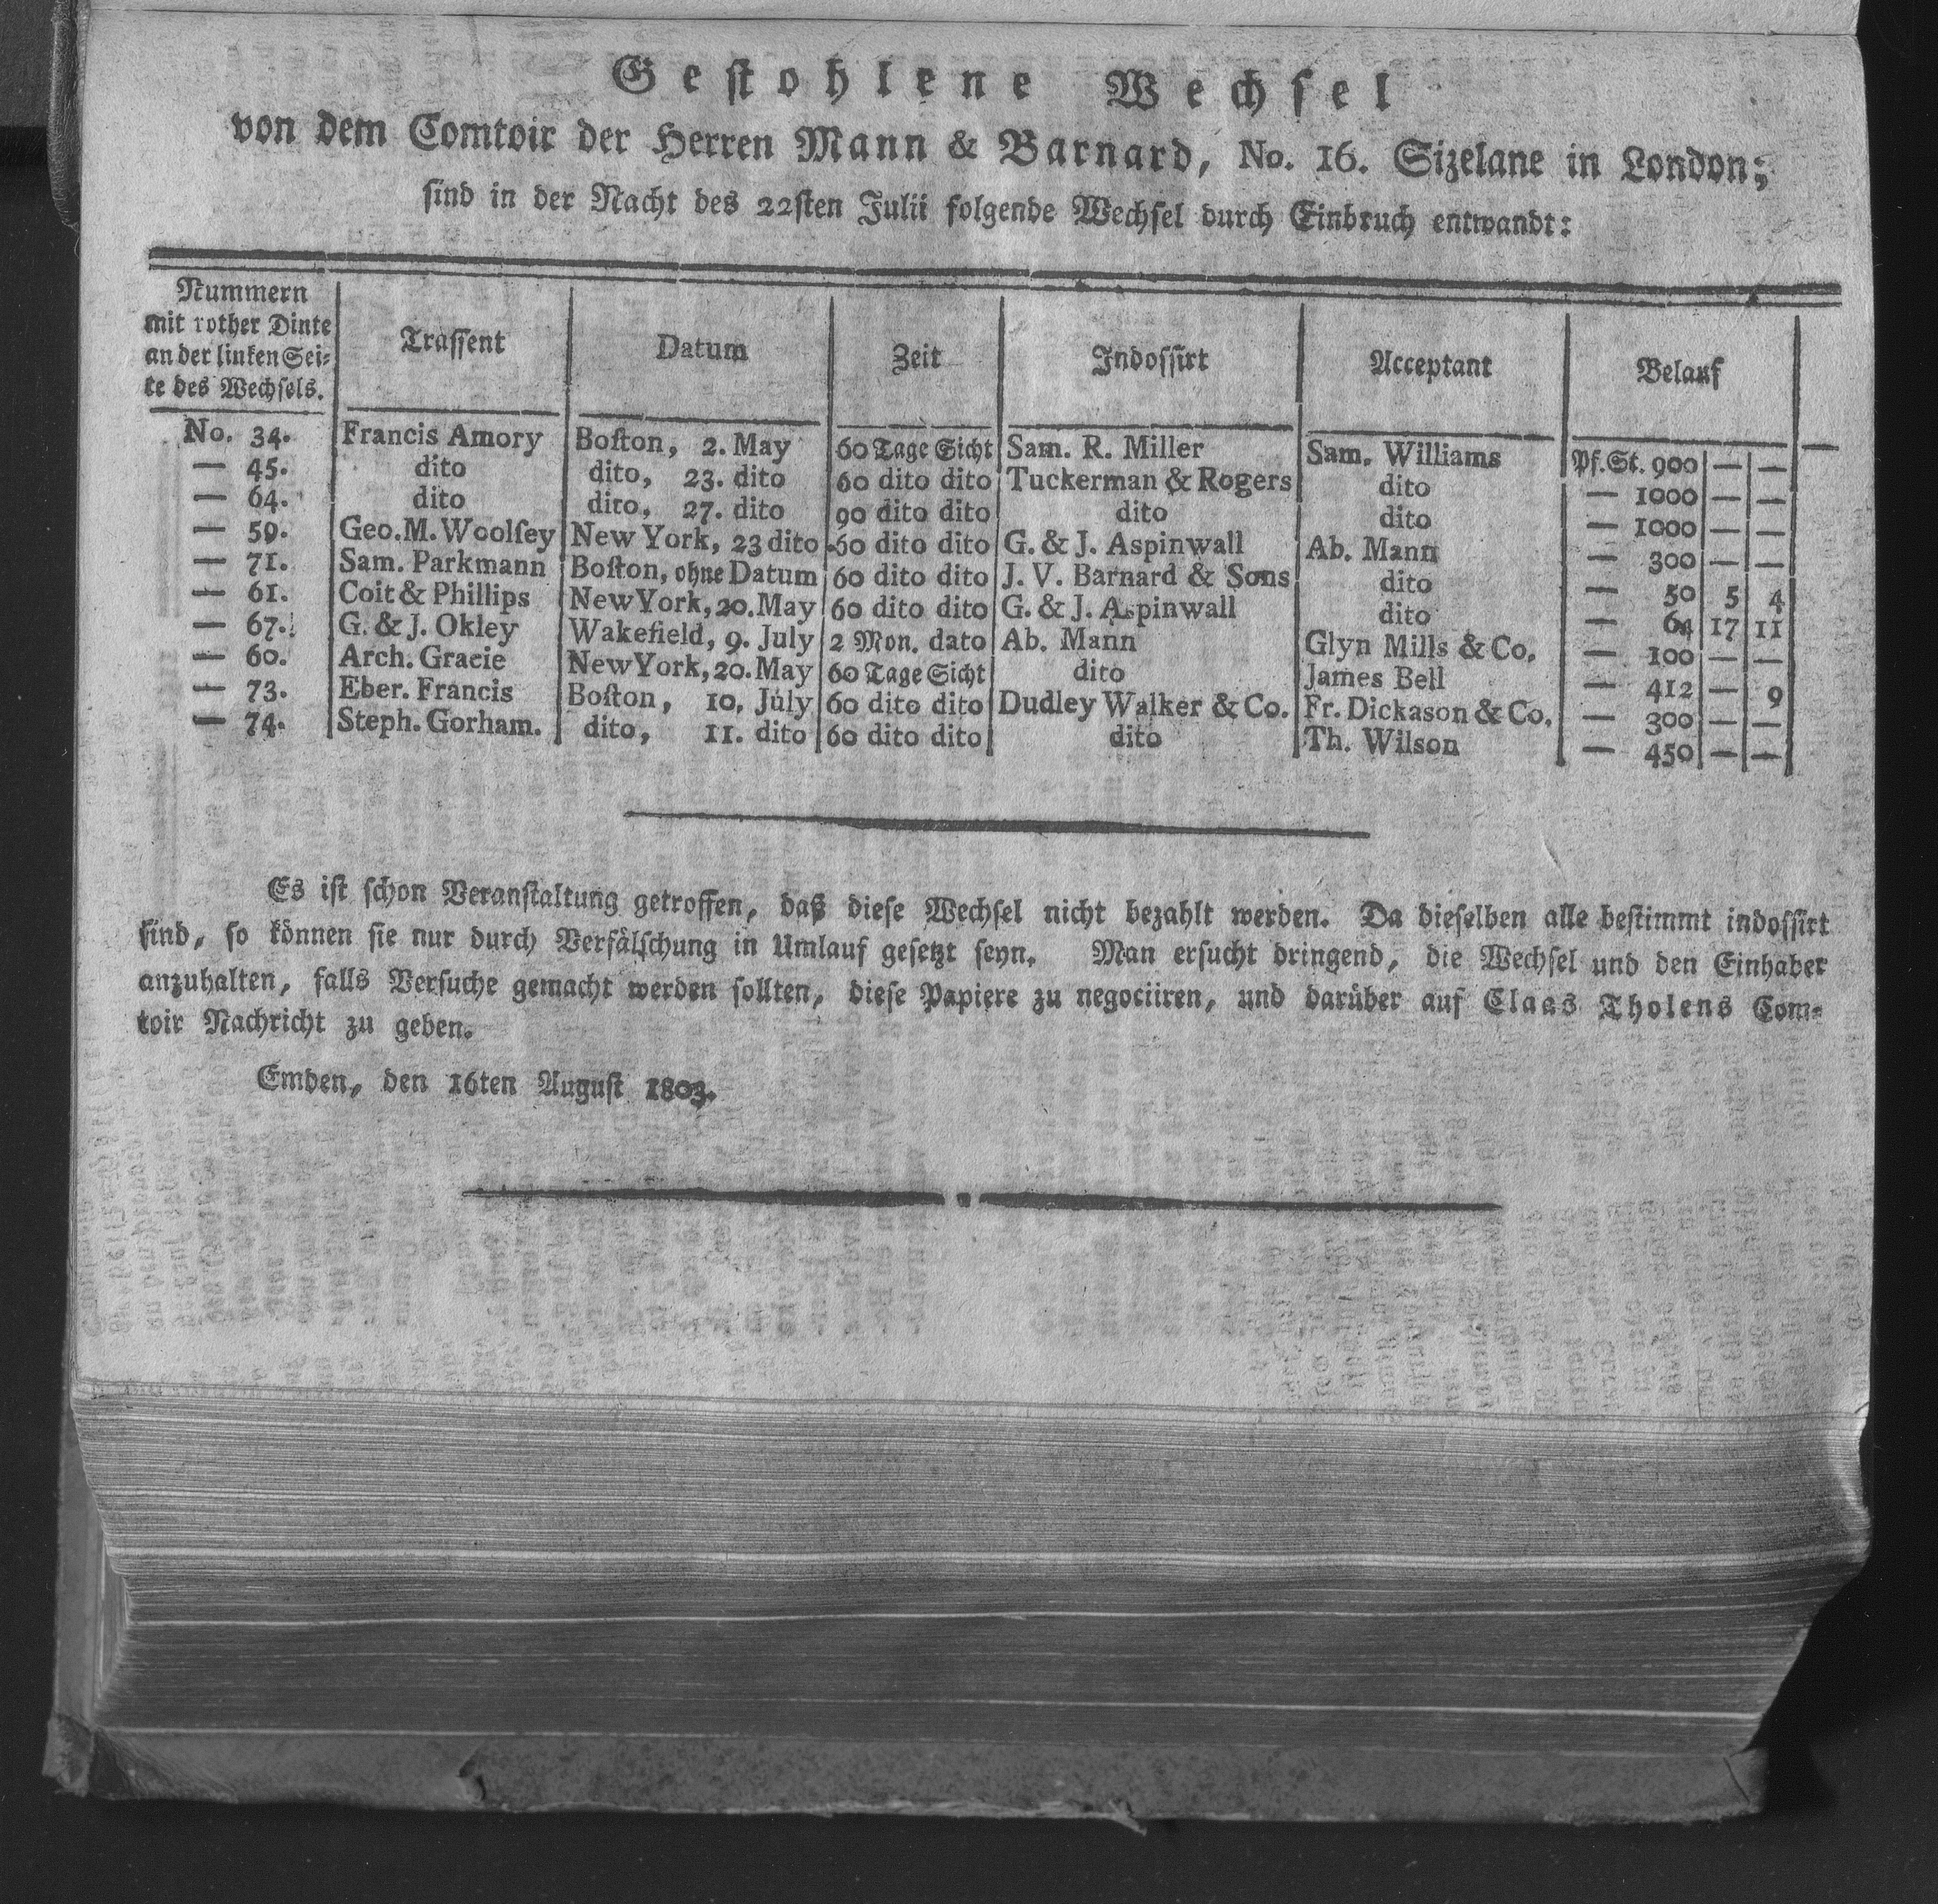 Gestohlene Wechsel
von dem Comtoir der Herren Mann & Barnard, No. 16. Sizelane in London;
sind in der Nacht des 22sten Julii folgende Wechsel durch Einbruch entwandt:
Nummern
mit rother Dinte
an der linken Sei-
te des Wechsels.
Trassent Datum Zeit Indossirt Acceptant Belauf
No. 34. Francis Amory Boston, 2. May 60 Tage Sicht Sam. R. Miller Sam. Williams Pf. St. 900 — —
— 45. dito dito, 23. dito 60 dito dito Tuckerman & Rogers dito — 1000 — —
— 64. dito dito, 27. dito 90 dito dito dito dito — 1000 — —
— 59. Geo. M. Woolsey New York, 23 dito 60 dito dito G. & J. Aspinwall Ab. Mann — 300 — —
— 71. Sam. Parkmann Boston, ohne Datum 60 dito dito J. V. Barnard & Sons dito — 50 5 4
— 61. Coit & Phillips New York, 20. May 60 dito dito G. & J. Aspinwall dito — 64 17 11
— 67. G. & J. Okley Wakefield, 9. July 2 Mon. dato Ab. Mann Glyn Mills & Co. — 100 — —
— 60. Arch. Gracie New York, 20. May 60 Tage Sicht dito James Bell — 412 — 9
— 73. Eber. Francis Boston, 10. July 60 dito dito Dudley Walker & Co. Fr. Dickason & Co. — 300 — —
— 74. Steph. Gorham. dito, 11. dito 60 dito dito dito Th. Wilson — 450 — —
Es ist schon Veranstaltung getroffen, daß diese Wechsel nicht bezahlt werden. Da dieselben alle bestimmt indossirt
sind, so können sie nur durch Verfälschung in Umlauf gesetzt seyn. Man ersucht dringend, die Wechsel und den Einhaber
anzuhalten, falls Versuche gemacht werden sollten, diese Papiere zu negociiren, und darüber auf Claas Tholens Com-
toir Nachricht zu geben.
Emden, den 16ten August 1803.